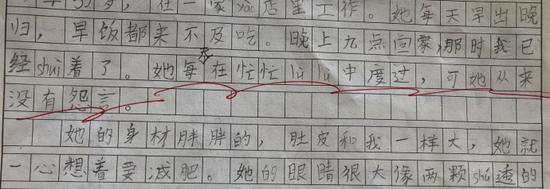 岁，在一家yào店里工作。她每天早出晚
归，早饭都来不及吃。晚上九点回家，那时我已
经shuì着了。她每天在忙忙lù lù中度过，可她从来
没有怨言。
她的身材胖胖的，肚皮和我一样大，她就
一心想着要减肥。她的眼睛很大像两颗shú透的